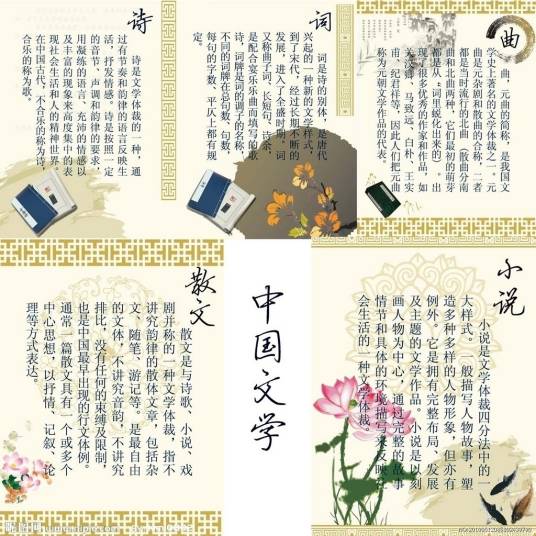 诗
诗是文学体裁的一种，通
过有节奏和韵律的语言反映生
活，抒发情感。诗是按照一定
的音节、声调和韵律的要求，
用凝练的语言、充沛的情感以
及丰富的现象来高度集中的表
现社会生活和人的精神世界。
在中国古代，不合乐的称为诗，
合乐的称为歌。
词
词是诗的别体，是唐代
兴起的一种新的文学样式，
到了宋代，经过长期不断的
发展，进入了全盛时期。词
又称曲子词、长短句、诗余，
是配合宴乐乐曲而填写的歌
诗，词牌是词的调子的名称，
不同的词牌在总句数、句数，
每句的字数、平仄上都有规
定。
曲
曲，元曲的简称，是我国文
学史上著名的文学体裁之一。元
曲是元杂剧和散曲的合称，二者
都是当时流行的北曲（散曲分南
曲和北曲两种，它们最初的萌芽
都是从“词”里蜕化出来的）。出
现了很多优秀的作家和作品，如
关汉卿、马致远、白朴、王实
甫、纪君祥等，因此人们把元曲
称为元朝文学作品的代表。
散文
散文是与诗歌、小说、戏
剧并称的一种文学体裁，指不
讲究韵律的散体文章，包括杂
文、随笔、游记等。是最自由
的文体，不讲究音韵，不讲究
排比，没有任何的束缚及限制，
也是中国最早出现的行文体例。
通常一篇散文具有一个或多个
中心思想，以抒情、记叙、论
理等方式表达。
中国文学
小说
小说是文学体裁四分法中的一
大样式。一般描写人物故事，塑
造多种多样的人物形象，但亦有
例外。它是拥有完整布局、发展
及主题的文学作品。小说是以刻
画人物为中心，通过完整的故事
情节和具体的环境描写来反映社
会生活的一种文学体裁。